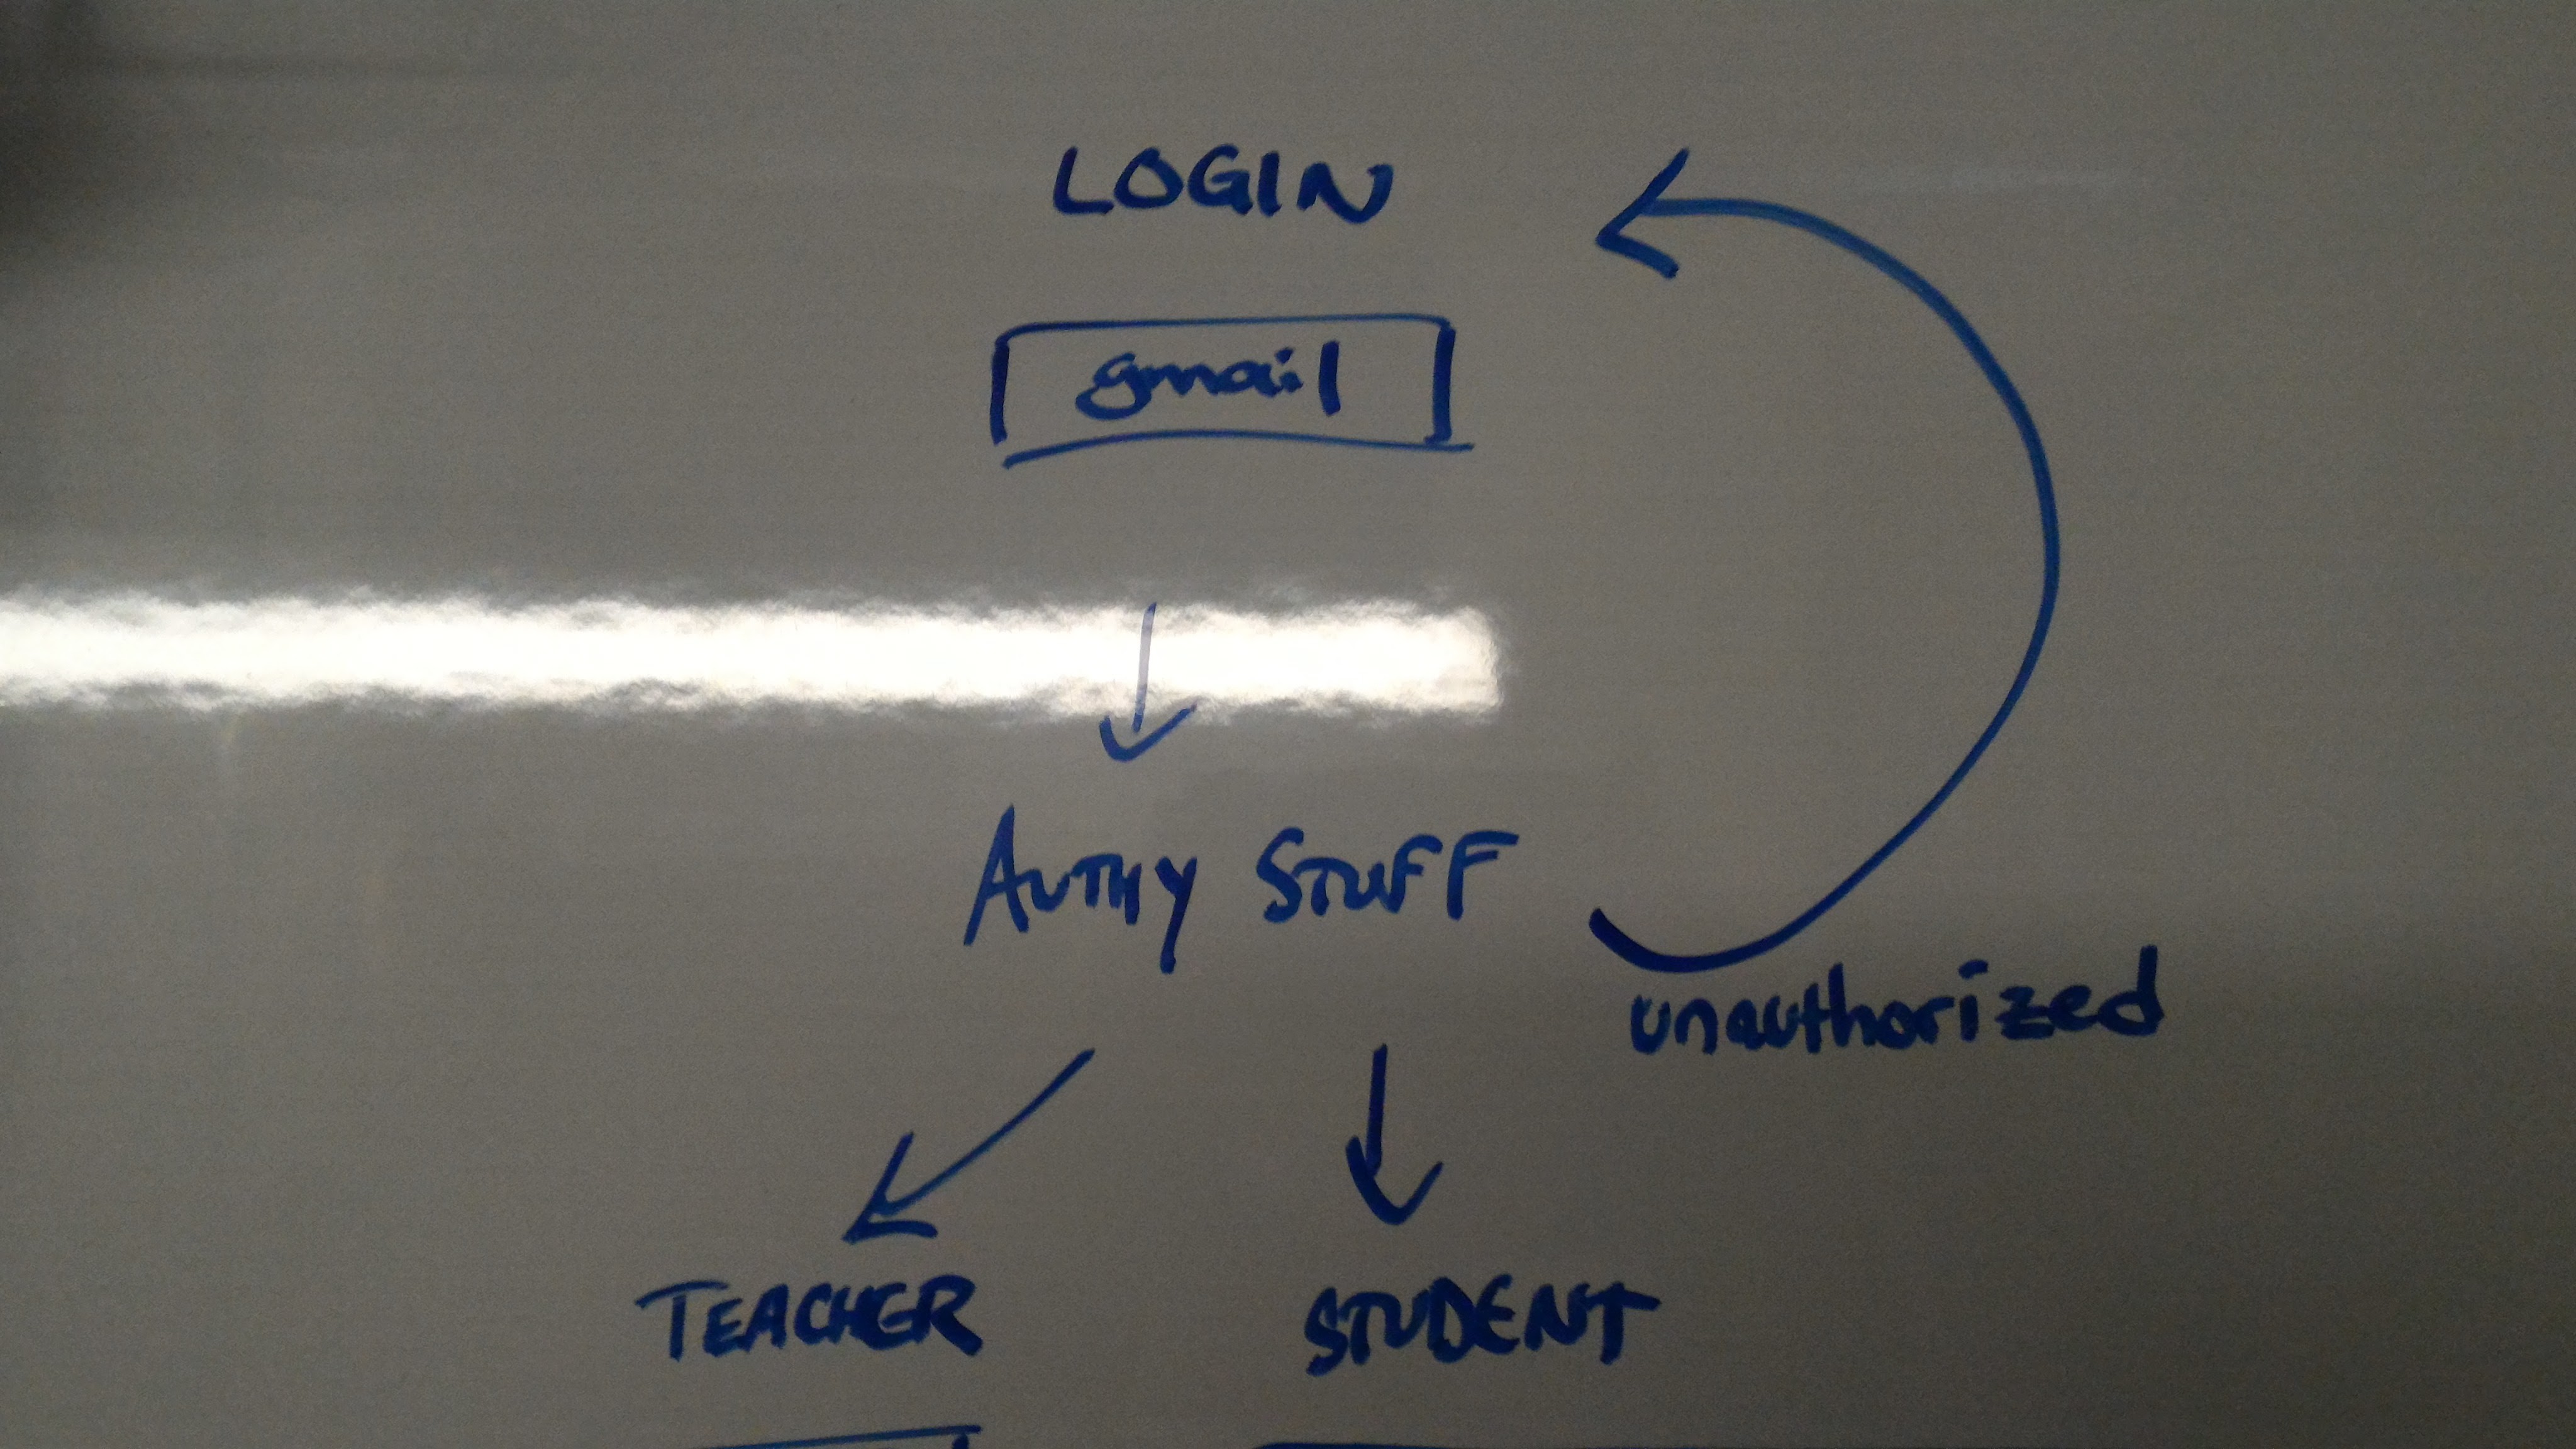 LOGIN
gmail
AUTHY STUFF
unauthorized
TEACHER STUDENT